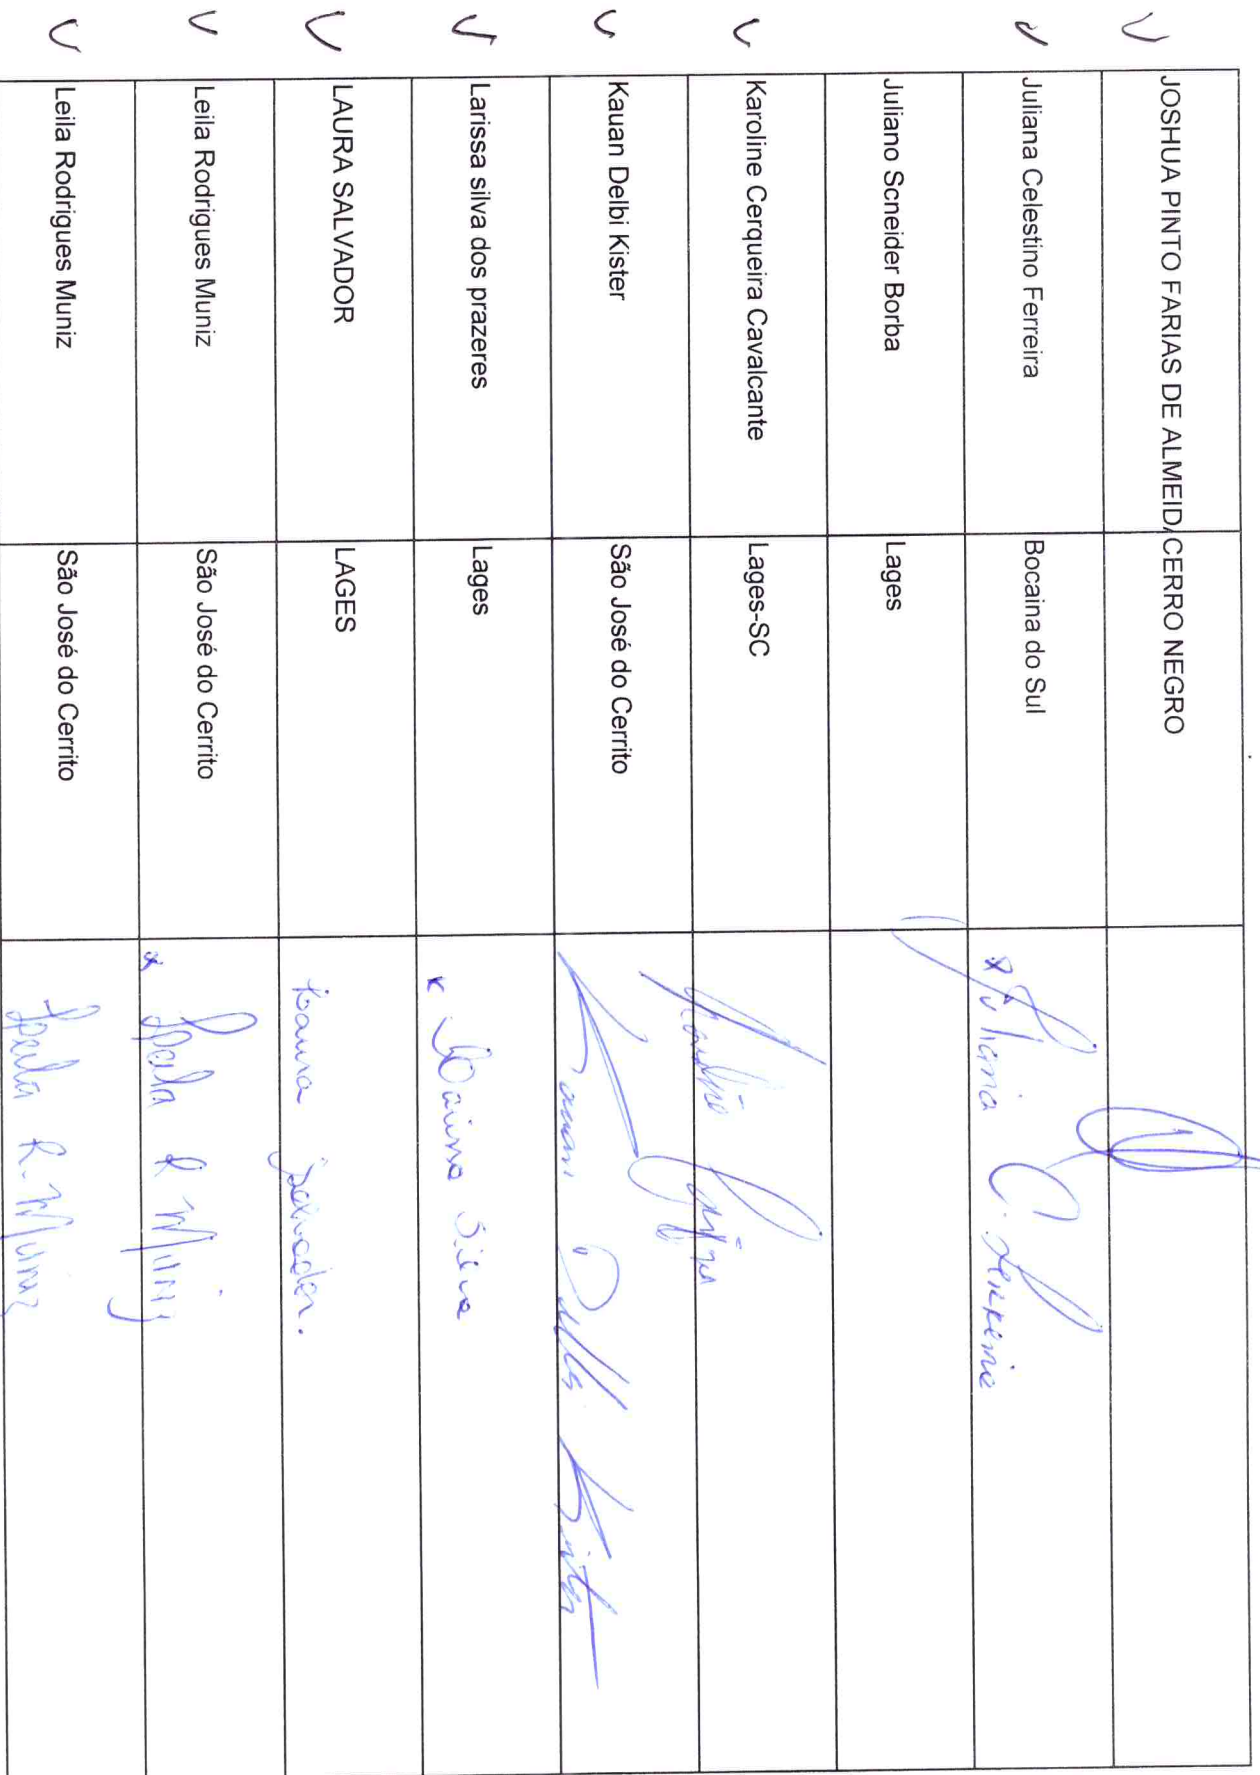 JOSHUA PINTO FARIAS DE ALMEIDA CERRO NEGRO
Juliana Celestino Ferreira Bocaina do Sul Juliana C. Ferreira
Juliano Scneider Borba Lages
Karoline Cerqueira Cavalcante Lages-SC
Kauan Delbi Kister São José do Cerrito Kauan Delbi Kister
Larissa silva dos prazeres Lages Larissa Silva
LAURA SALVADOR LAGES Laura Salvador.
Leila Rodrigues Muniz São José do Cerrito Leila R Muniz
Leila Rodrigues Muniz São José do Cerrito Leila R. Muniz